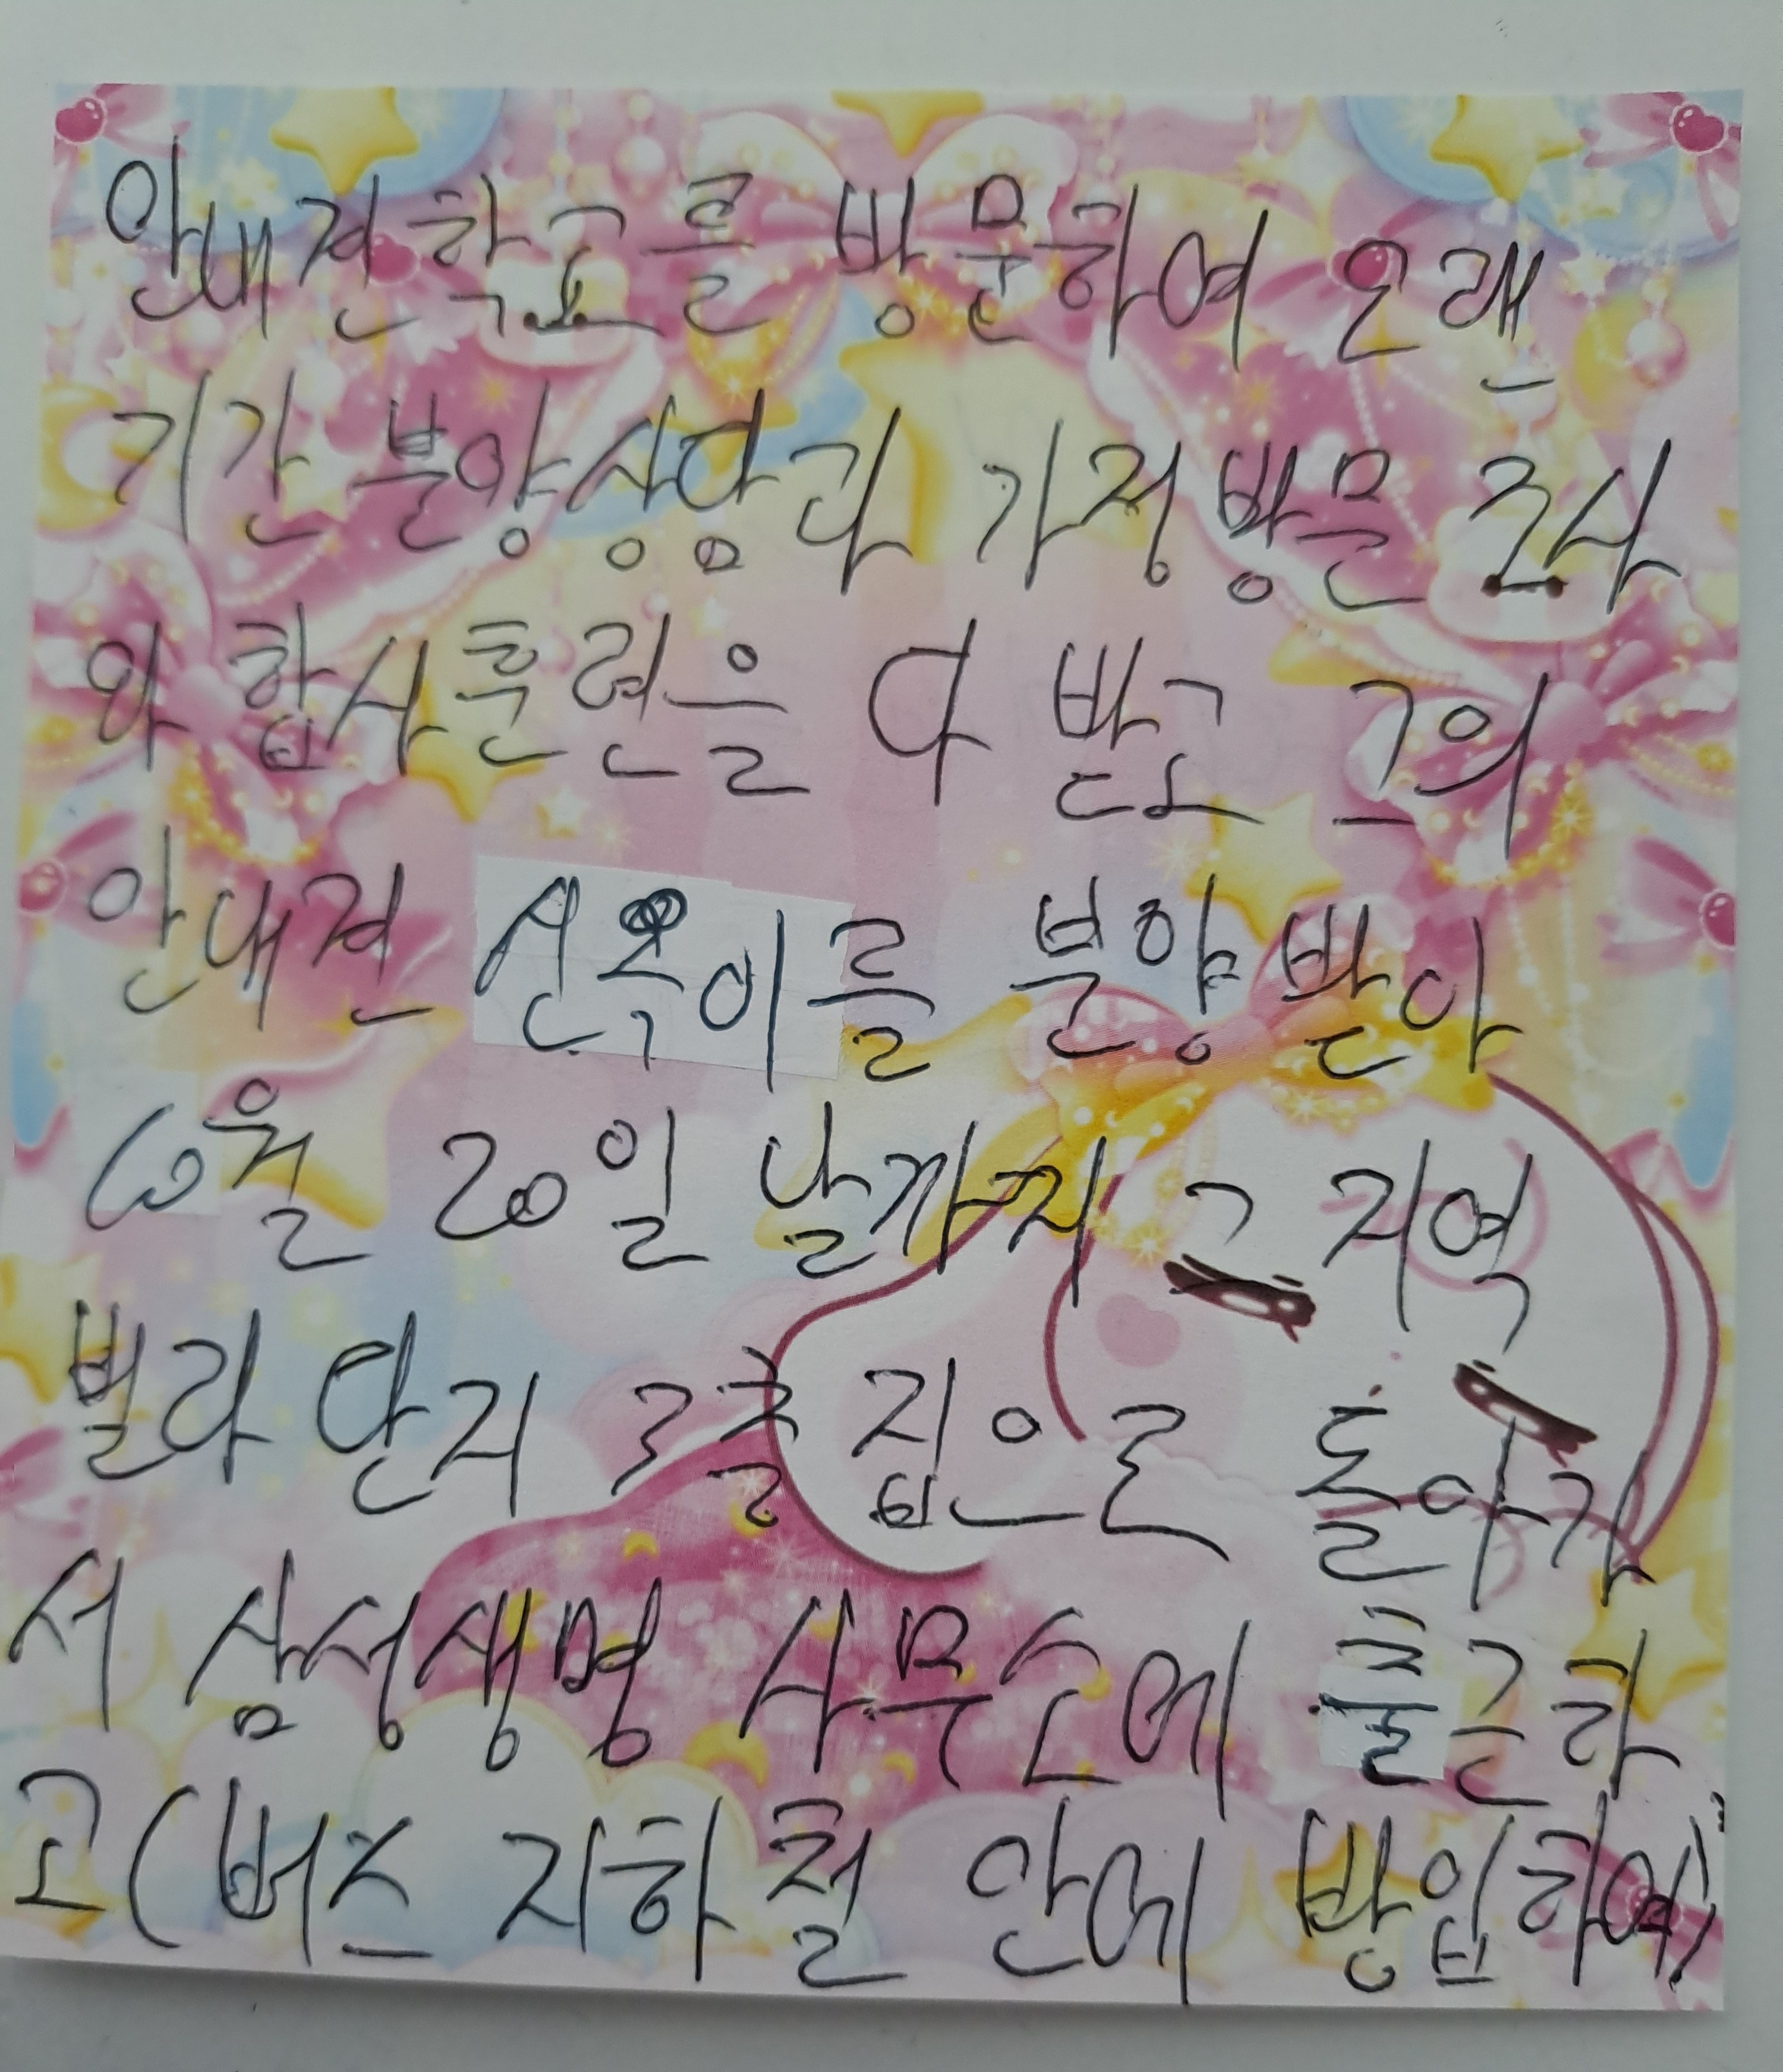 안내견학교를 방문하여 오랜
기간 분양상담과 가정방문 조사
와 합사훈련을 다 받고 그의
안내견 선옥이를 분양 받아
6월 20일 날까지 그 지역
빌라 단지 3층 집으로 돌아가
서 삼성생명 사무소에 출근하
고(버스 지하철 안에 방입하여)